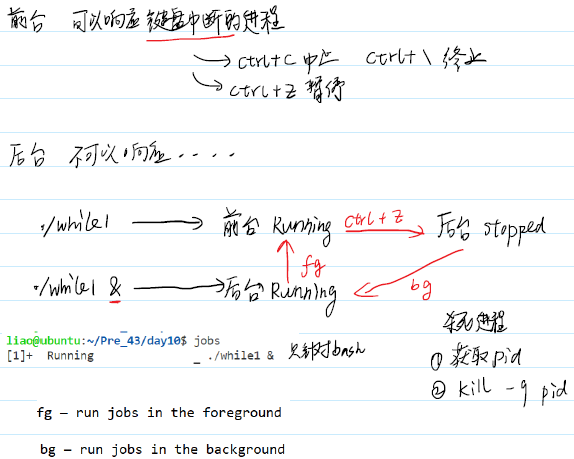 前台 可以响应键盘中断的进程
ctrl+c 中止 ctrl+\ 终止
ctrl+z 暂停
后台 不可以响应....
./while1 前台 Running ctrl+z 后台 stopped
fg
bg
./while1 & 后台 Running
liao@ubuntu:~/Pre_43/day10$ jobs
[1]+ Running ./while1 & 只针对bash
杀死进程
① 获取pid
② kill -9 pid
fg — run jobs in the foreground
bg — run jobs in the background